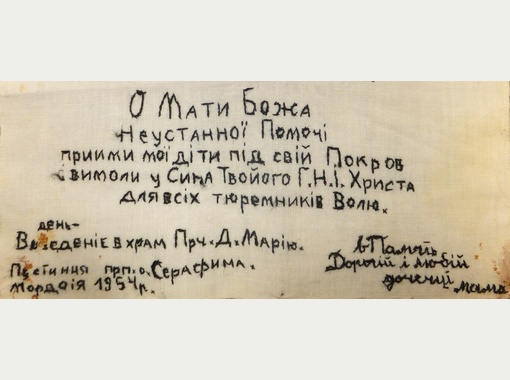 О Мати Божа
Неустанної Помочі
приими мої діти під свій Покров
і вимоли у Сина Твойого Г.Н.І. Христа
для всіх тюремників Волю.
день-
Введеніе в храм Прч. Д. Марію.
Пустиння прп. о. Серафима.
Мордвія 1954 г.
в Память
Дорогій і любій
дочечці мама